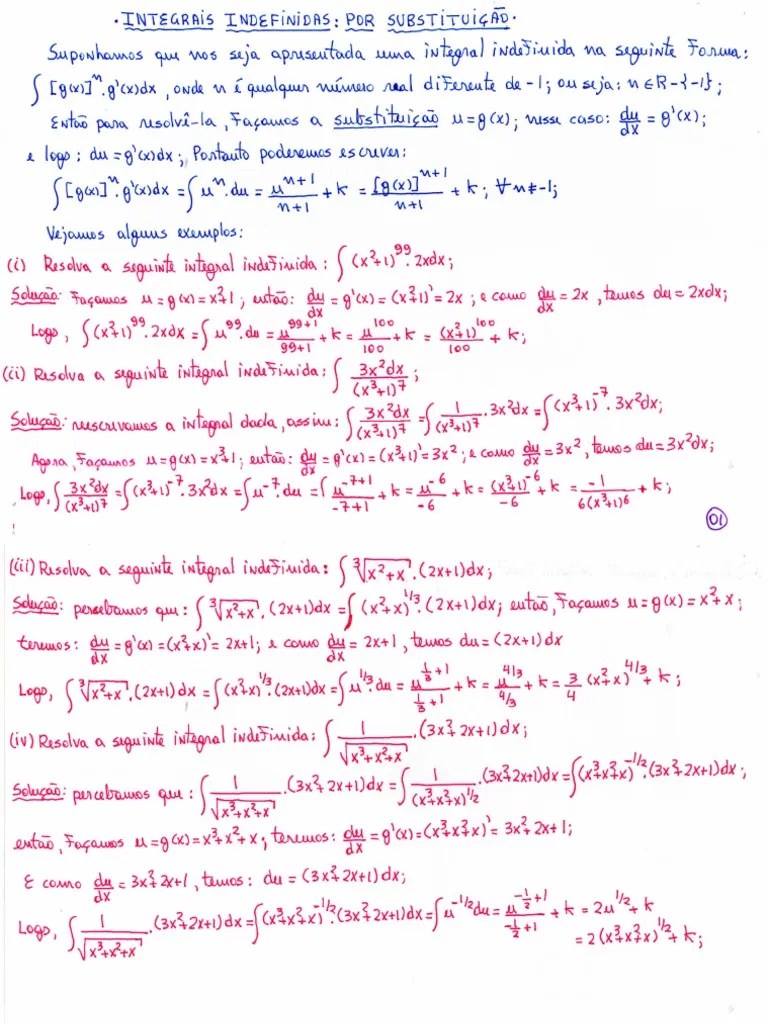 · INTEGRAIS INDEFINIDAS: POR SUBSTITUIÇÃO ·
Suponhamos que nos seja apresentada uma integral indefinida na seguinte Forma:
∫ [g(x)]ⁿ . g'(x)dx , onde n é qualquer número real diferente de -1; ou seja: n ∈ R - {-1};
Então para resolvê-la, Façamos a substituição u = g(x); nesse caso: du/dx = g'(x);
e logo: du = g'(x)dx; Portanto poderemos escrever:
∫ [g(x)]ⁿ . g'(x)dx = ∫ uⁿ . du = u^(n+1)/(n+1) + k = [g(x)]^(n+1)/(n+1) + k; ∀ n ≠ -1;
Vejamos alguns exemplos:
(i) Resolva a seguinte integral indefinida: ∫ (x²+1)^99 . 2xdx;
Solução: Façamos u = g(x) = x²+1; então: du/dx = g'(x) = (x²+1)' = 2x; e como du/dx = 2x, temos du = 2xdx;
Logo, ∫ (x²+1)^99 . 2xdx = ∫ u^99 . du = u^(99+1)/(99+1) + k = u^100/100 + k = (x²+1)^100/100 + k;
(ii) Resolva a seguinte integral indefinida: ∫ 3x²dx/(x³+1)^7;
Solução: reescrevamos a integral dada, assim: ∫ 3x²dx/(x³+1)^7 = ∫ 1/(x³+1)^7 . 3x²dx = ∫ (x³+1)^-7 . 3x²dx;
Agora, Façamos u = g(x) = x³+1; então: du/dx = g'(x) = (x³+1)' = 3x²; e como du/dx = 3x², temos du = 3x²dx;
Logo, ∫ 3x²dx/(x³+1)^7 = ∫ (x³+1)^-7 . 3x²dx = ∫ u^-7 . du = ∫ u^(-7+1)/(-7+1) + k = u^-6/-6 + k = (x³+1)^-6/-6 + k = -1/6(x³+1)^6 + k;
01
(iii) Resolva a seguinte integral indefinida: ∫ ³√(x²+x) . (2x+1)dx;
Solução: percebamos que: ∫ ³√(x²+x) . (2x+1)dx = ∫ (x²+x)^1/3 . (2x+1)dx; então, Façamos u = g(x) = x²+x;
teremos: du/dx = g'(x) = (x²+x)' = 2x+1; e como du/dx = 2x+1, temos du = (2x+1)dx
Logo, ∫ ³√(x²+x) . (2x+1)dx = ∫ (x²+x)^1/3 . (2x+1)dx = ∫ u^1/3 . du = u^(1/3+1)/(1/3+1) + k = u^4/3/(4/3) + k = 3/4 (x²+x)^4/3 + k;
(iv) Resolva a seguinte integral indefinida: ∫ 1/√(x³+x²+x) . (3x²+2x+1)dx;
Solução: percebamos que: ∫ 1/√(x³+x²+x) . (3x²+2x+1)dx = ∫ 1/(x³+x²+x)^1/2 . (3x²+2x+1)dx = ∫ (x³+x²+x)^-1/2 . (3x²+2x+1)dx;
então, Façamos u = g(x) = x³+x²+x; teremos: du/dx = g'(x) = (x³+x²+x)' = 3x²+2x+1;
E como du/dx = 3x²+2x+1, temos: du = (3x²+2x+1)dx;
Logo, ∫ 1/√(x³+x²+x) . (3x²+2x+1)dx = ∫ (x³+x²+x)^-1/2 . (3x²+2x+1)dx = ∫ u^-1/2 du = u^(-1/2+1)/(-1/2+1) + k = 2u^1/2 + k
= 2(x³+x²+x)^1/2 + k;